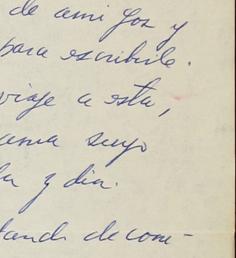 de ami Jos y
para escribirle.
viaje a esta,
ama suyo
y dia.
tando de com-